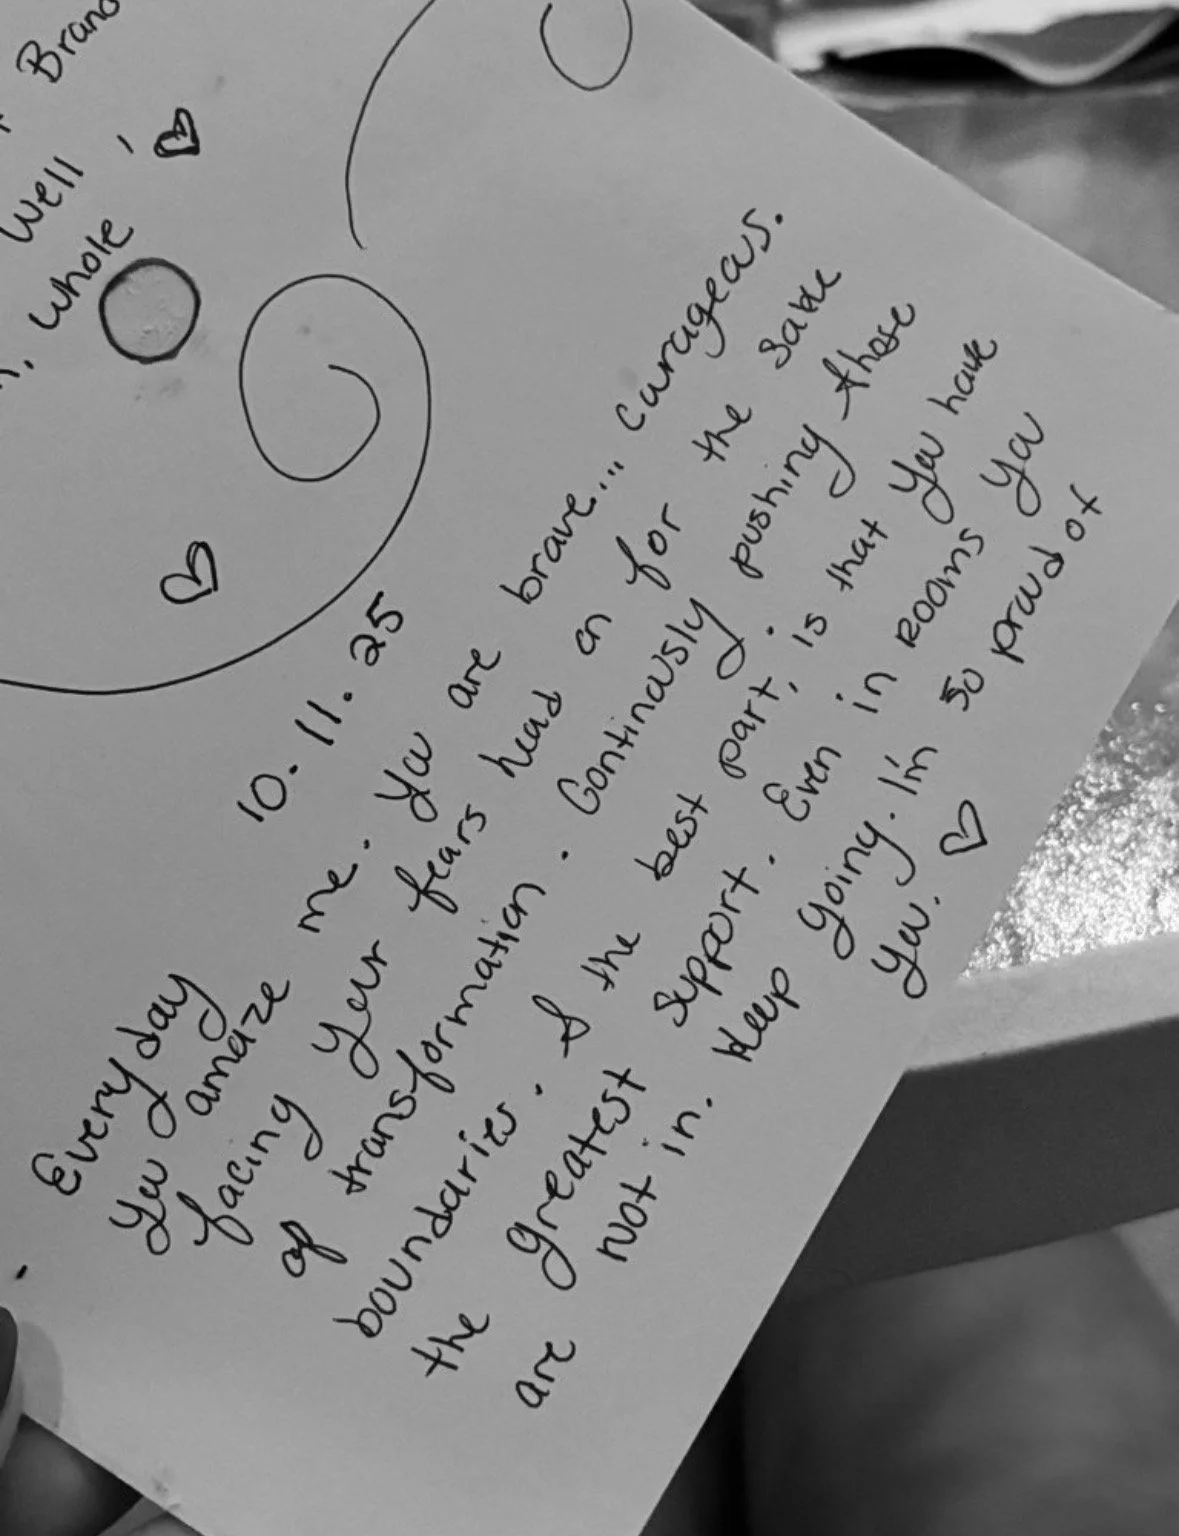 Brand
Well, ♡
, whole
♡
10.11.25
Everyday
You amaze me. You are brave... curageous.
facing your fears head on for the sake
of transformation. Continously pushing those
boundaries. & the best part, is that you have
the greatest support. Even in rooms you
are not in. Keep going. I'm so proud of
you. ♡